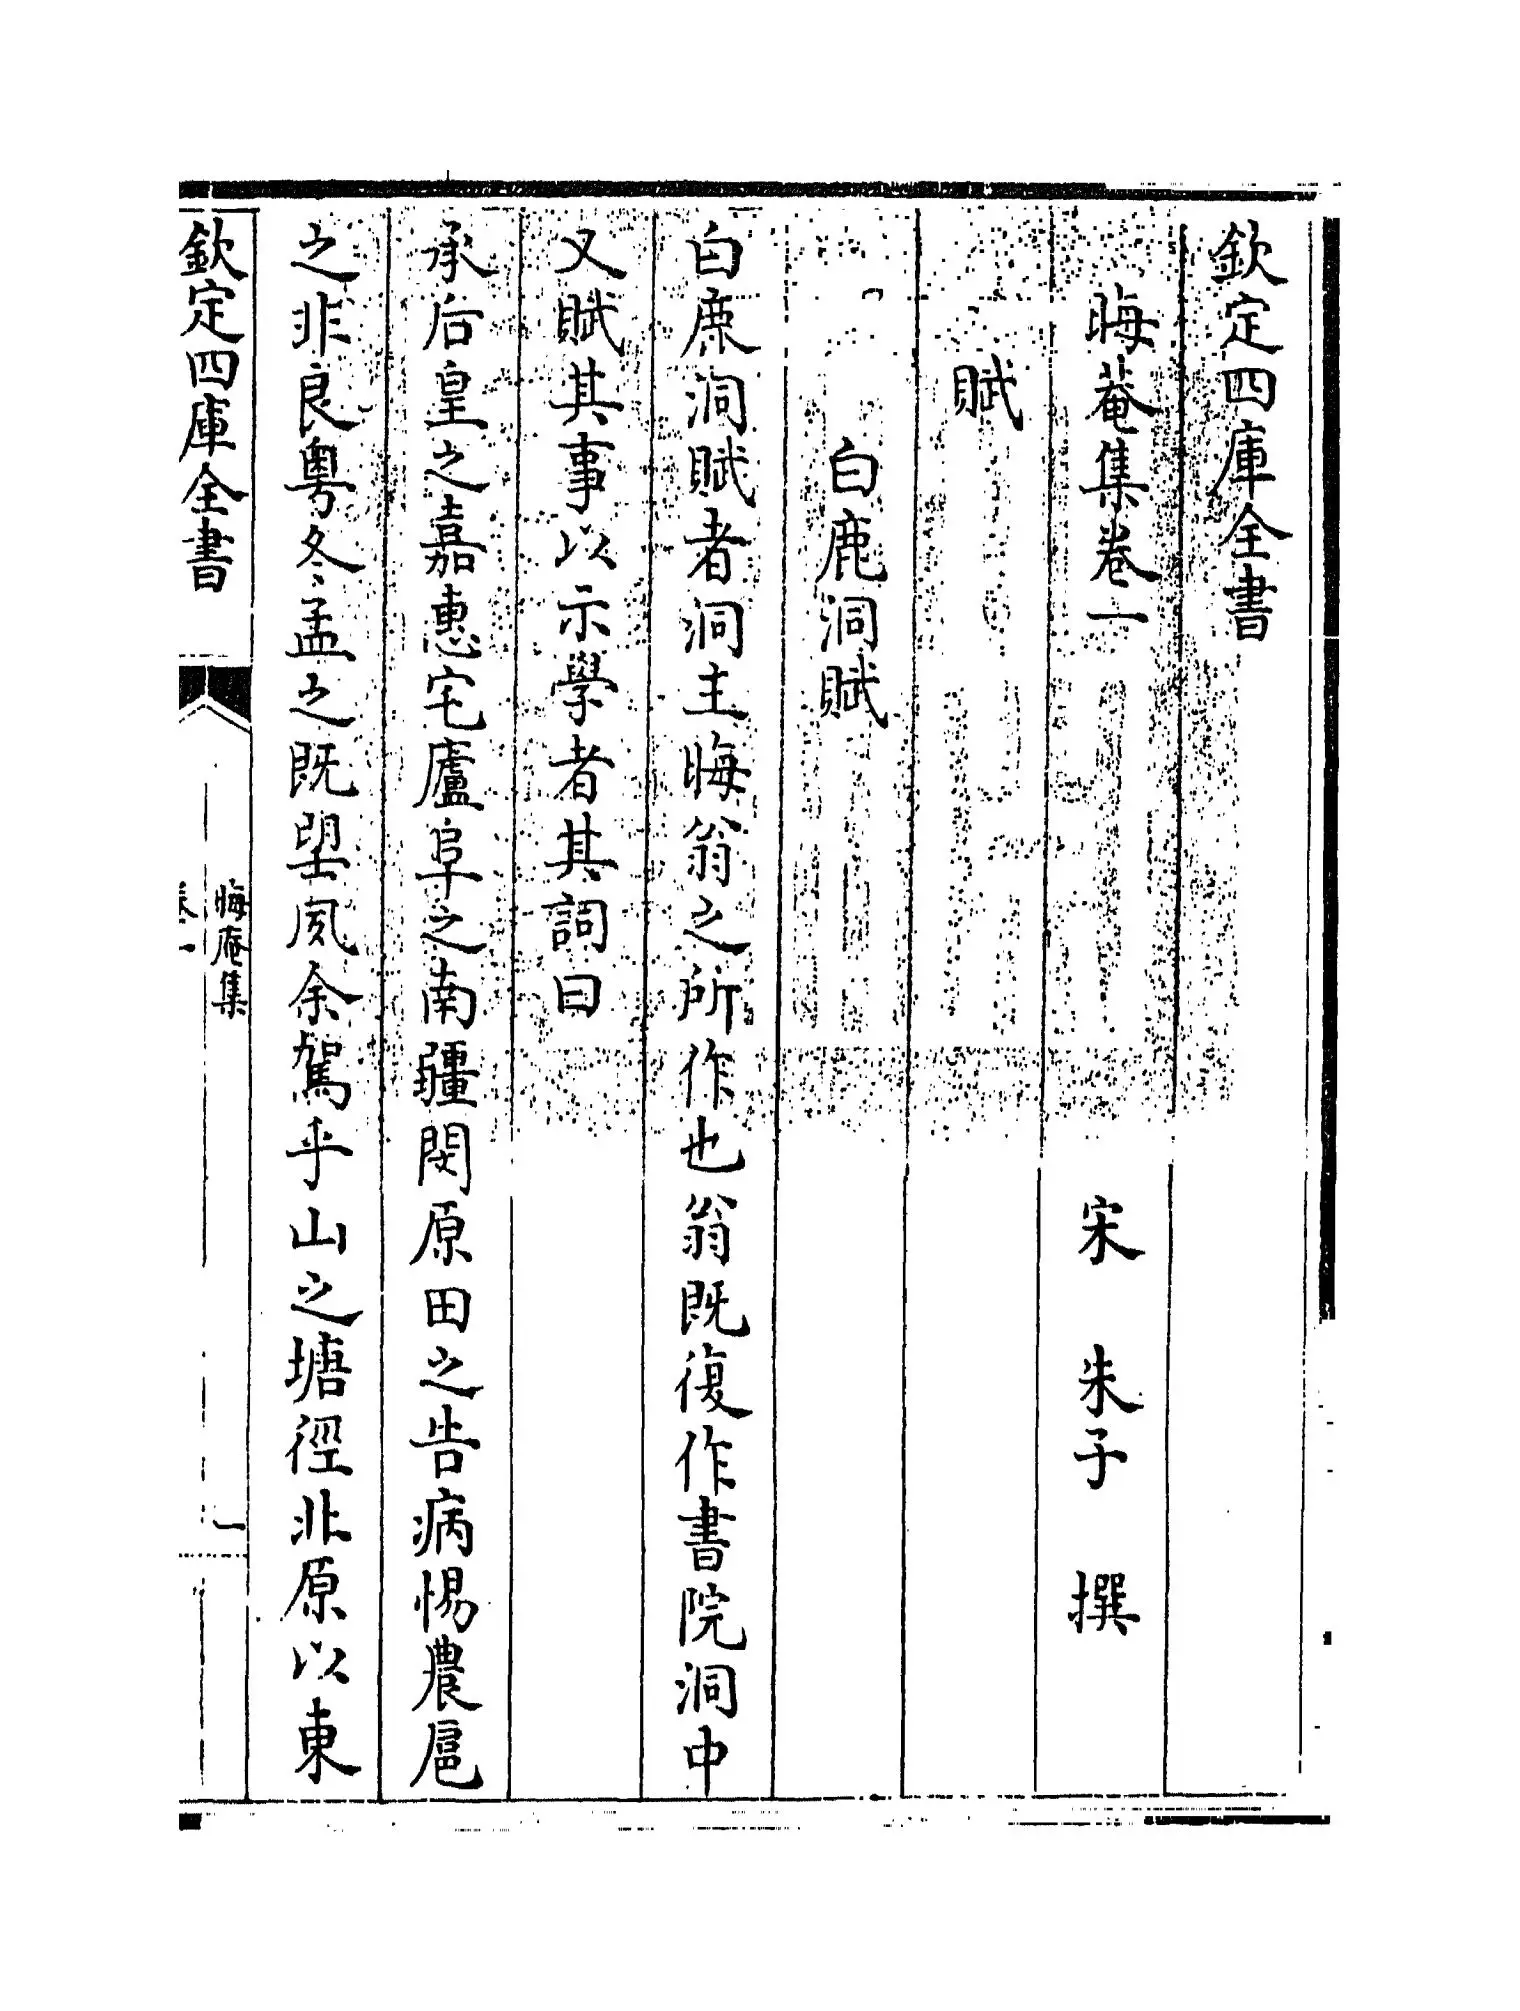 欽定四庫全書
晦菴集卷一
宋 朱子 撰
賦
白鹿洞賦
白鹿洞賦者洞主晦翁之所作也翁既復作書院洞中
又賦其事以示學者其詞曰
承后皇之嘉惠宅廬阜之南疆閔原田之告病惕農扈
之非良粤冬孟之既望夙余駕乎山之塘徑北原以東
欽定四庫全書
晦庵集
卷一
一